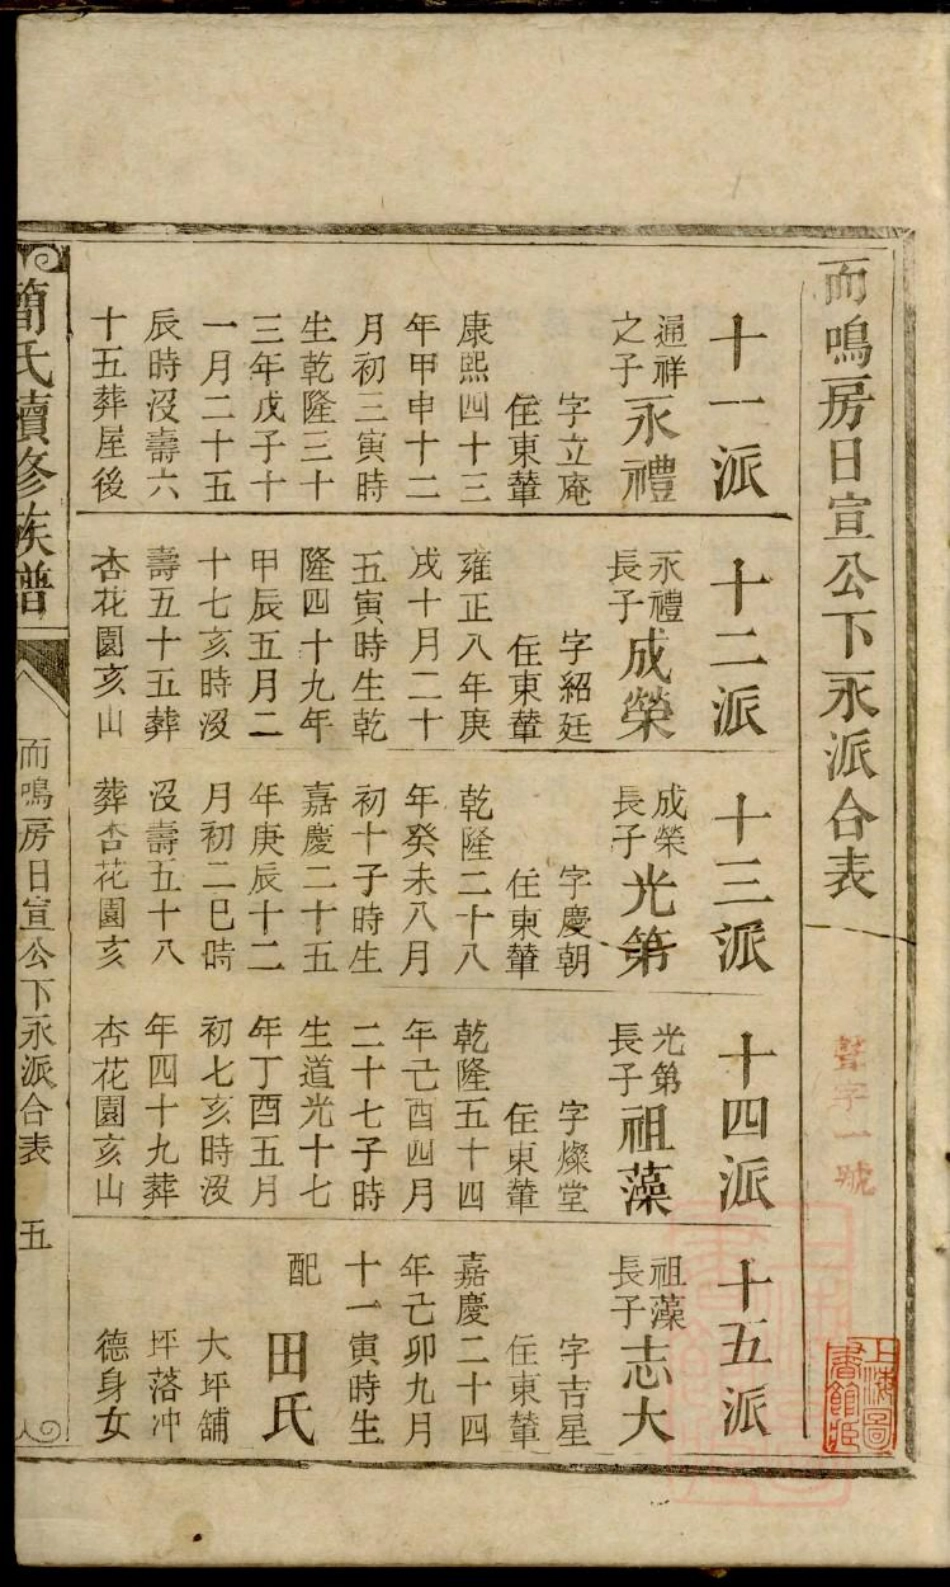 而鳴房日宣公下永派合表
聲字一號
上海圖書館藏
十一派
通祥之子永禮
字立庵
住東輦
康熙四十三
年甲申十二
月初三寅時
生乾隆三十
三年戊子十
一月二十五
辰時沒壽六
十五葬屋後
十二派
永禮長子成榮
字紹廷
住東輦
雍正八年庚
戌十月二十
五寅時生乾
隆四十九年
甲辰五月二
十七亥時沒
壽五十五葬
杏花園亥山
十三派
成榮長子光第
字慶朝
住東輦
乾隆二十八
年癸未八月
初十子時生
嘉慶二十五
年庚辰十二
月初二巳時
沒壽五十八
葬杏花園亥
十四派
光第長子祖藻
字燦堂
住東輦
乾隆五十四
年己酉四月
二十七子時
生道光十七
年丁酉五月
初七亥時沒
年四十九葬
杏花園亥山
十五派
祖藻長子志大
字吉星
住東輦
嘉慶二十四
年己卯九月
十一寅時生
配
田氏
大坪舖
坪落冲
德身女
簡氏續修族譜
而鳴房日宣公下永派合表 五